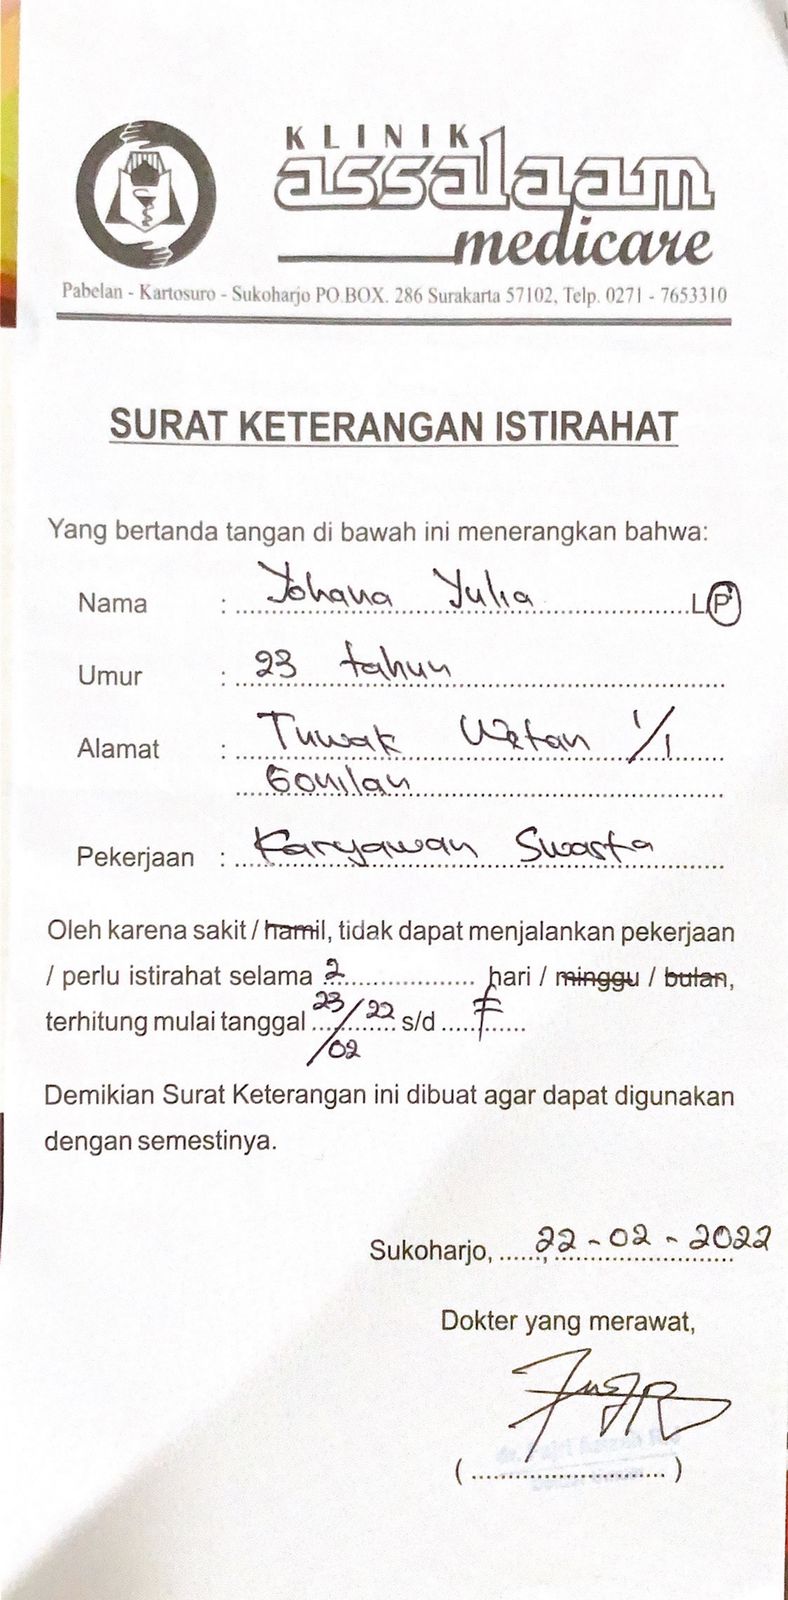 KLINIK
assalaam
medicare
Pabelan - Kartosuro - Sukoharjo PO.BOX. 286 Surakarta 57102, Telp. 0271 - 7653310
SURAT KETERANGAN ISTIRAHAT
Yang bertanda tangan di bawah ini menerangkan bahwa:
Nama : Yohana Yulia L/P
Umur : 23 tahun
Alamat : Tuwak Wetan 1/1
Gonilan
Pekerjaan : Karyawan Swasta
Oleh karena sakit / hamil, tidak dapat menjalankan pekerjaan
/ perlu istirahat selama 2 hari / minggu / bulan,
terhitung mulai tanggal 23/02 22 s/d
Demikian Surat Keterangan ini dibuat agar dapat digunakan
dengan semestinya.
Sukoharjo, 22-02-2022
Dokter yang merawat,
(....................)